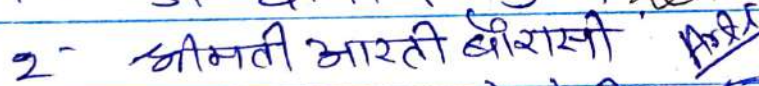 2- श्रीमती आरती बौरासी